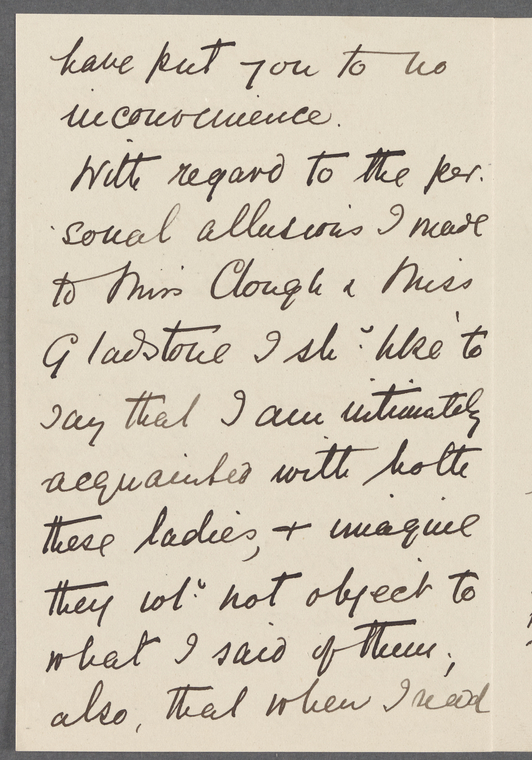 have put you to no
inconvenience.
With regard to the per-
sonal allusions I made
to Miss Clough & Miss
Gladstone I shd like to
say that I am intimately
acquainted with both
these ladies, & imagine
they wld not object to
what I said of them;
also, that when I read